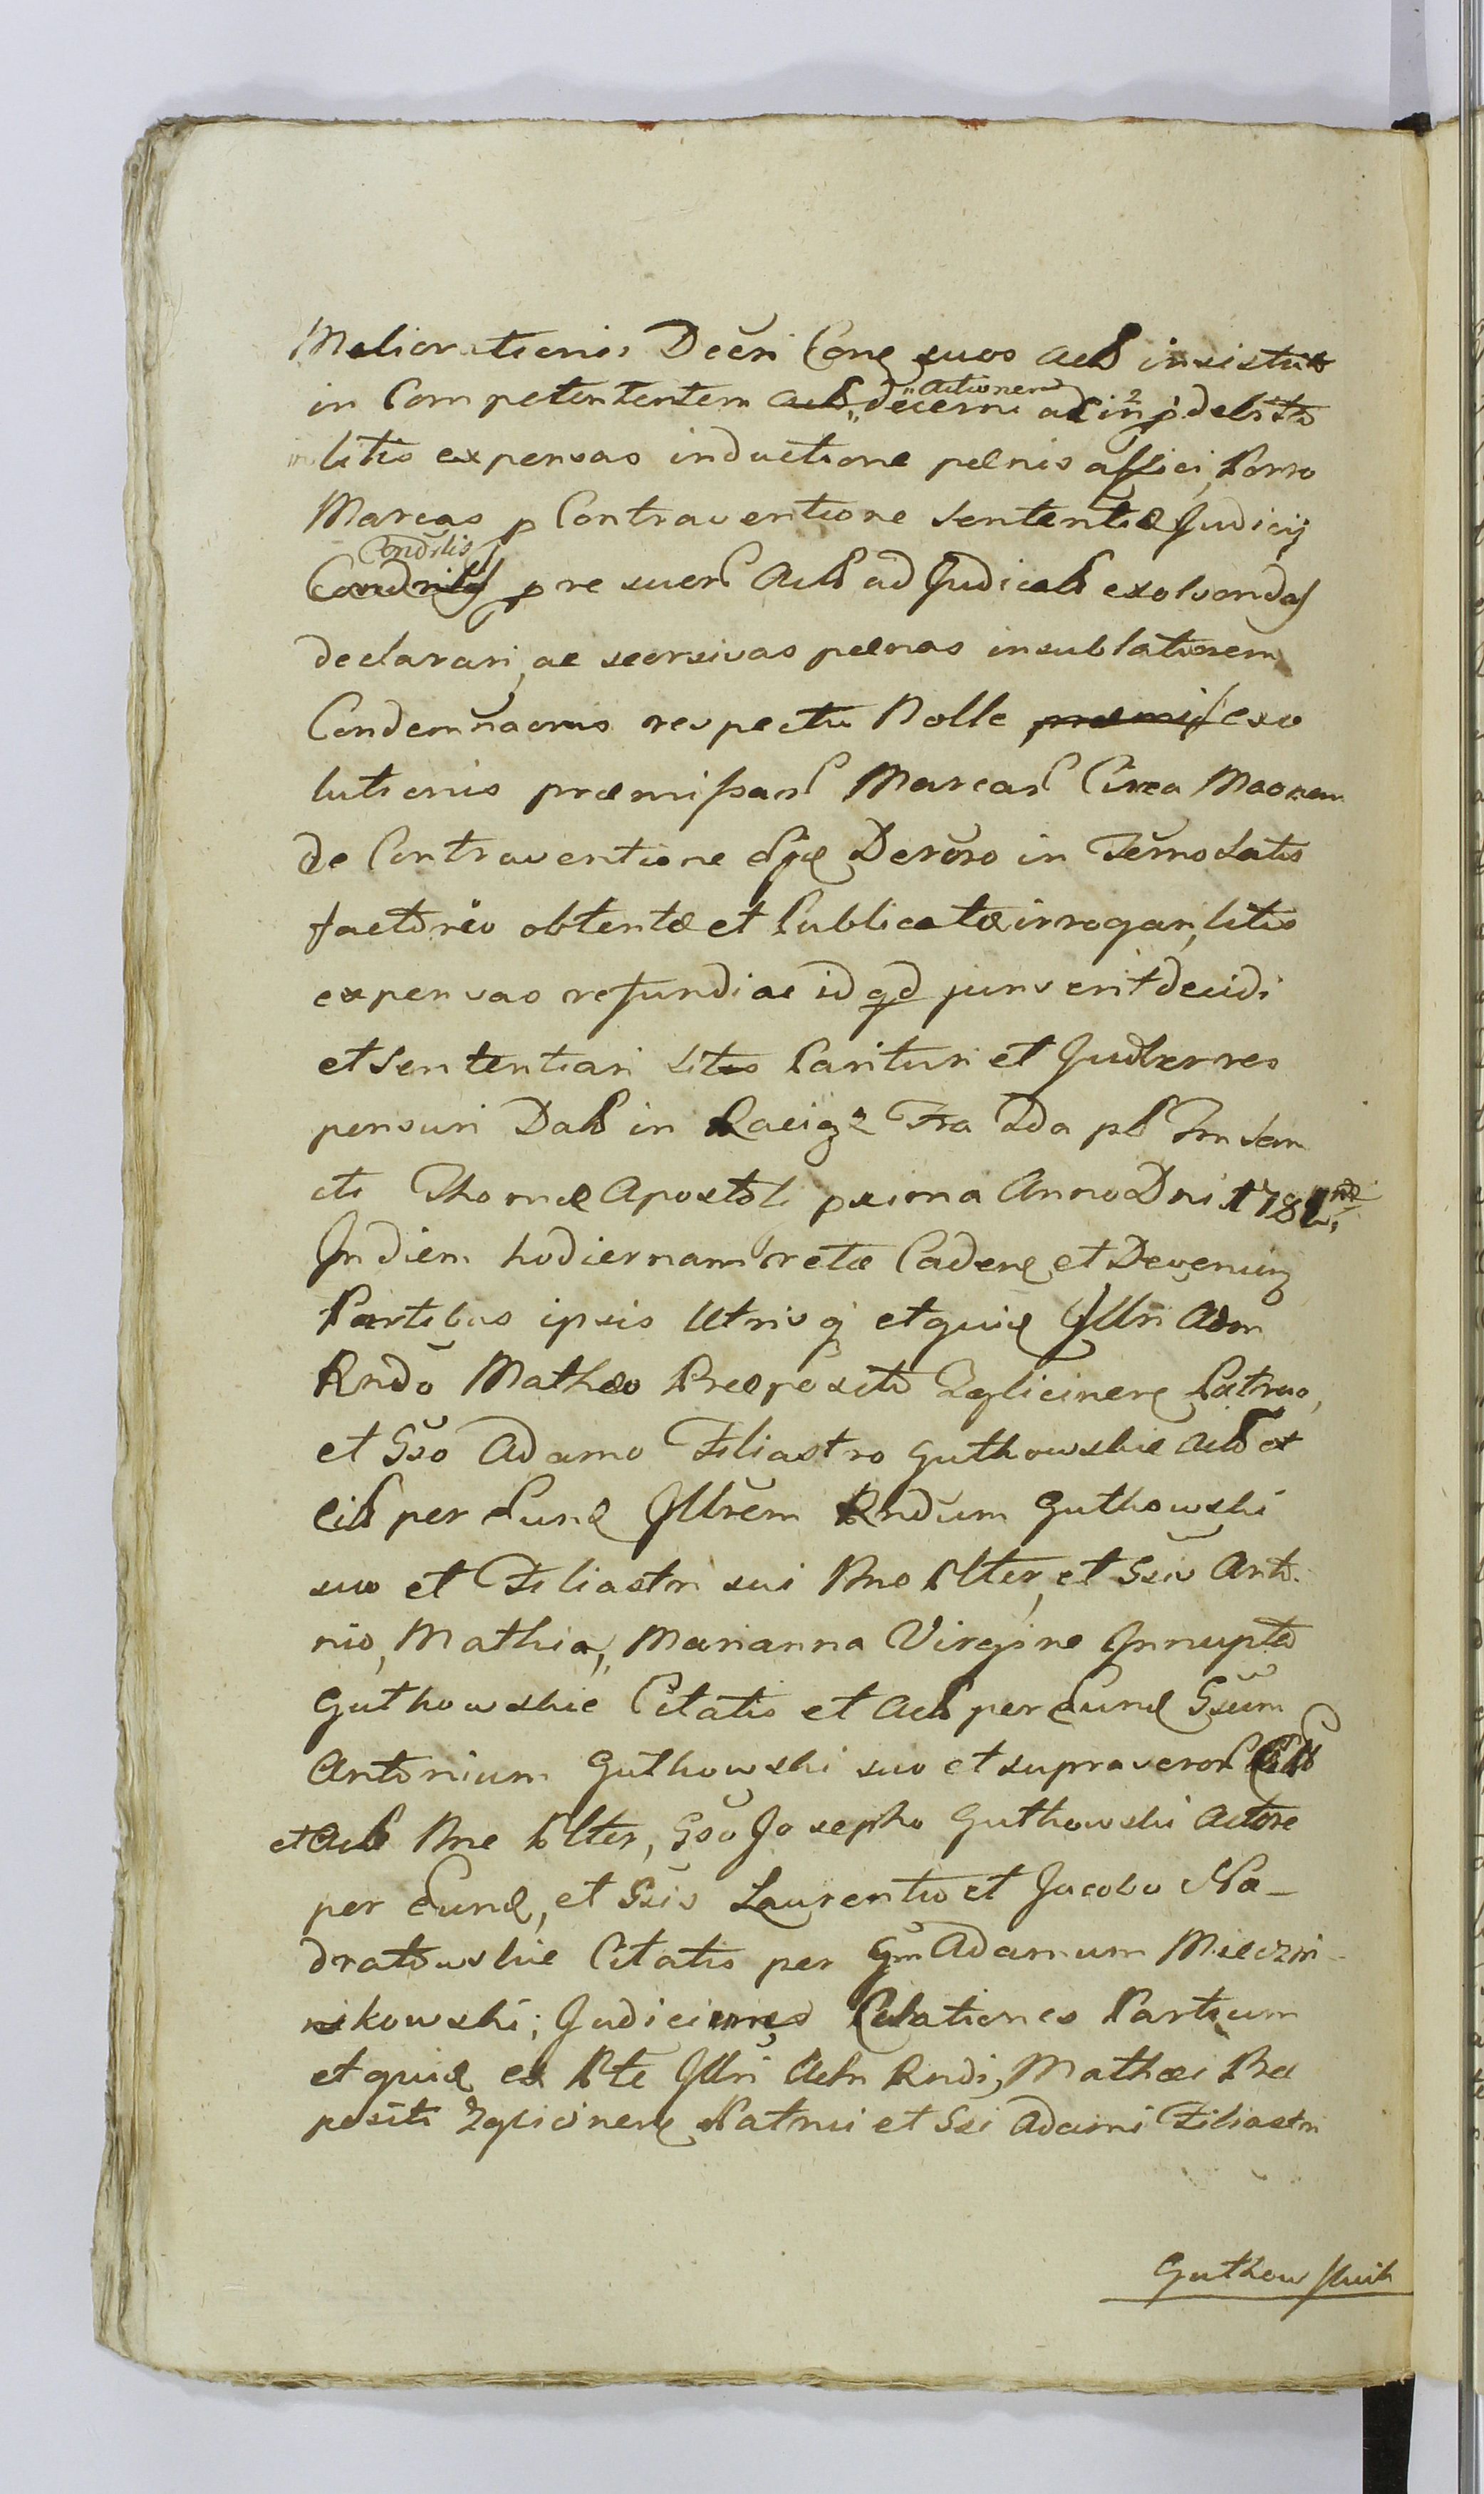 Meliorationis Decri Conq suos act insistub
in Competententem decerni actionem ad in p debita
litis expensas inductione pœnis affici, Porro
Marcas p Contraventione Sententiæ Judicij
Condrilis p re suor Act ad Judicat exolvendas
declarari, ac seorsivas pœnas in sublationem
Condemnaonis respectu Nolle exo
lutionis præmissar Marcar Circa Maonem
de Contraventione Decro in Termo Satis
facto obtentæ et Publicatæ irrogari, litis
expensas refundi ac id qd juris erit decidi
et Sententiari Parituri et
pensuri Dat in Raciąz Fra 2da pt Fm San
cti Thomæ Apostoli pxima Anno Dni 1782
In diem hodiernam recte Caden et Devenien
Partibus ipsis Utrisq et quid Illri Adm
Rndo Mathæo Præposito Zglicinen Patruo,
et Gso Adamo Filiastro Guthowskie Act et
Cit per Eund Illrem Rndum Guthowski
suo et Filiastri sui Nno Plter, et Gsis Anto
nio, Mathia, Marianna Virgine Innupta
Guthowskie Citatis et Act per Eund Gsum
Antonium Guthowski suo et supra
et Act Nne Plter, Gso Josepho Guthowski Actore
per Eund, et Gsis Laurentio et Jacobo Na-
dratowskie Citatis per Gm Adamum Mieczni
kowski; Judicium Partium
et quid ex Pte Illri Adm Rndi, Mathæi Præ
positi Zglicinen Patrui et Gsi Adami Filiastri
Guthowskich